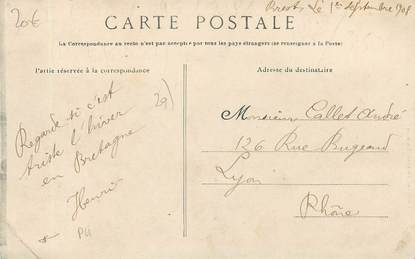 20€
Brest, Le 1er septembre 1908
CARTE POSTALE
La Correspondance au recto n'est pas acceptée par tous les pays étrangers (se renseigner à la Poste)
Partie réservée à la correspondance
Adresse du destinataire
Regarde si c'est
triste l'hiver
en Bretagne
Henri
29)
PG
Monsieur Callet André
126 Rue Bugeaud
Lyon
Rhône